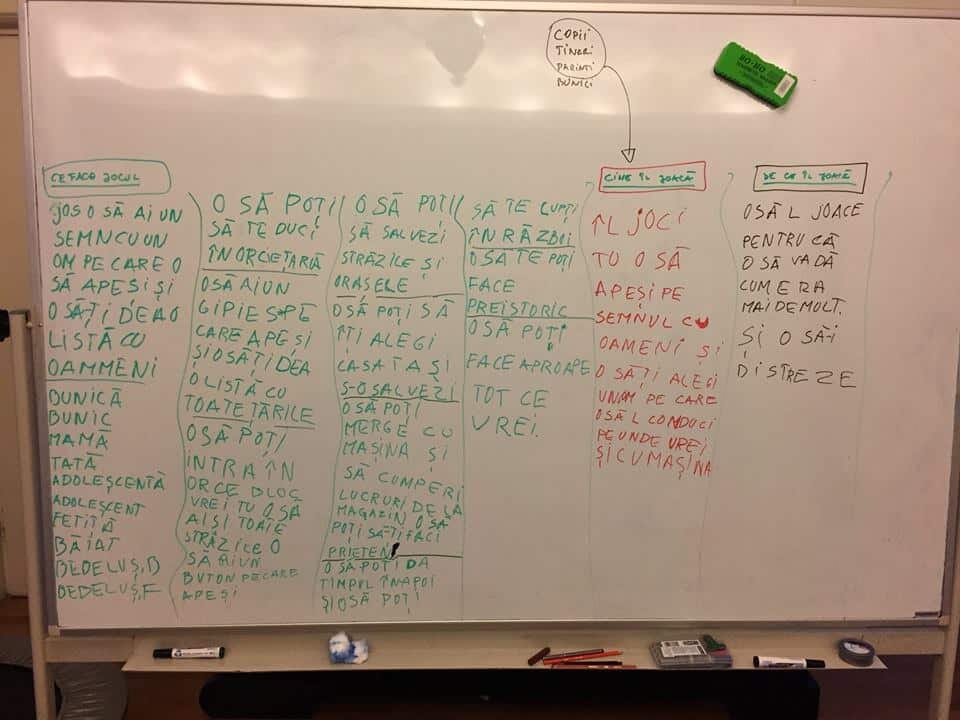 COPII
TINERI
PARINTI
BUNICI
BO-HO
CE FACE JOCUL
JOS O SĂ AI UN
SEMN CU UN
OM PE CARE O
SĂ APESI ȘI
O SĂ ȚI DEA O
LISTĂ CU
OAMMENI
BUNICĂ
BUNIC
MAMĂ
TATĂ
ADOLEȘCENTĂ
ADOLEȘCENT
FETIȚĂ
BĂIAT
BEDELUȘ,B
BEDELUȘ,F
O SĂ POȚI
SĂ TE DUCI
ÎN ORCIEȚARĂ
O SĂ AI UN
GIPIES PE
CARE APEȘI
ȘI O SĂ ȚI DEA
O LISTĂ CU
TOATE ȚĂRILE
O SĂ POȚI
INTRA ÎN
ORCE BLOC
VREI TU O SĂ
AI ȘI TOATE
STRĂZILE O
SĂ AI UN
BUTON PE CARE
APEȘI
O SĂ POȚI
SĂ SALVEZI
STRĂZILE ȘI
ORAȘELE
O SĂ POȚI SĂ
ÎTI ALEGI
CASA TA ȘI
S-O SALVEZI
O SĂ POȚI
MERGE CU
MAȘINA ȘI
SĂ CUMPERI
LUCRURI DE LA
MAGAZIN O SĂ
POȚI SĂ-ȚI FACI
PRIETENI
O SĂ POȚI DA
TIMPUL ÎNAPOI
ȘI O SĂ POȚI
SĂ TE LUPȚI
ÎN RĂZBOI
O SĂ TE POȚI
FACE
PREISTORIC
O SĂ POȚI
FACE APROAPE
TOT CE
VREI.
CINE ÎL JOACĂ
ÎL JOCI
TU O SĂ
APEȘI PE
SEMNUL CU
OAMENI ȘI
O SĂ ȚI ALEGI
UNAM PE CARE
O SĂ L CONDUCI
PE UNDE VREI
ȘI CU MAȘINA
DE CE ÎL JOACĂ
O SĂ L JOACE
PENTRU CĂ
O SĂ VADĂ
CUM ERA
MAI DEMULT.
ȘI O SĂ-I
DISTREZE